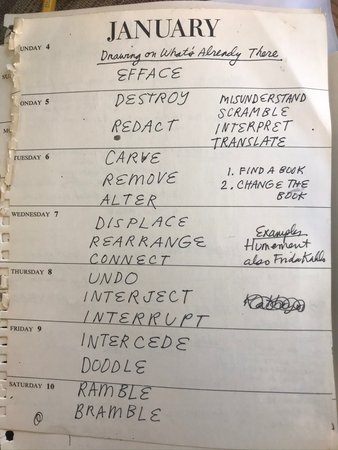 JANUARY
UNDAY 4
Drawing on What's Already There
EFFACE
ONDAY 5
DESTROY
MISUNDERSTAND
SCRAMBLE
REDACT
INTERPRET
TRANSLATE
TUESDAY 6
CARVE
REMOVE
1. FIND A BOOK
ALTER
2. CHANGE THE
BOOK
WEDNESDAY 7
DISPLACE
REARRANGE
Examples
Humement
CONNECT
also Frida Kahlo
THURSDAY 8
UNDO
INTERJECT
INTERRUPT
FRIDAY 9
INTERCEDE
DOODLE
SATURDAY 10
RAMBLE
BRAMBLE